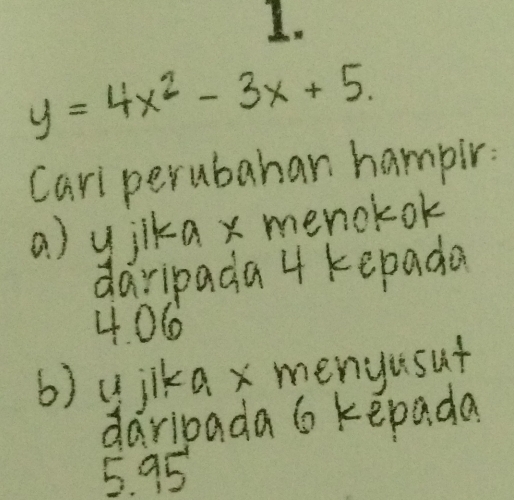 1.
y = 4x² - 3x + 5.
Cari perubahan hampir:
a) y jika x menokok
daripada 4 kepada
4.06
b) y jika x menyusut
daripada 6 kepada
5.95